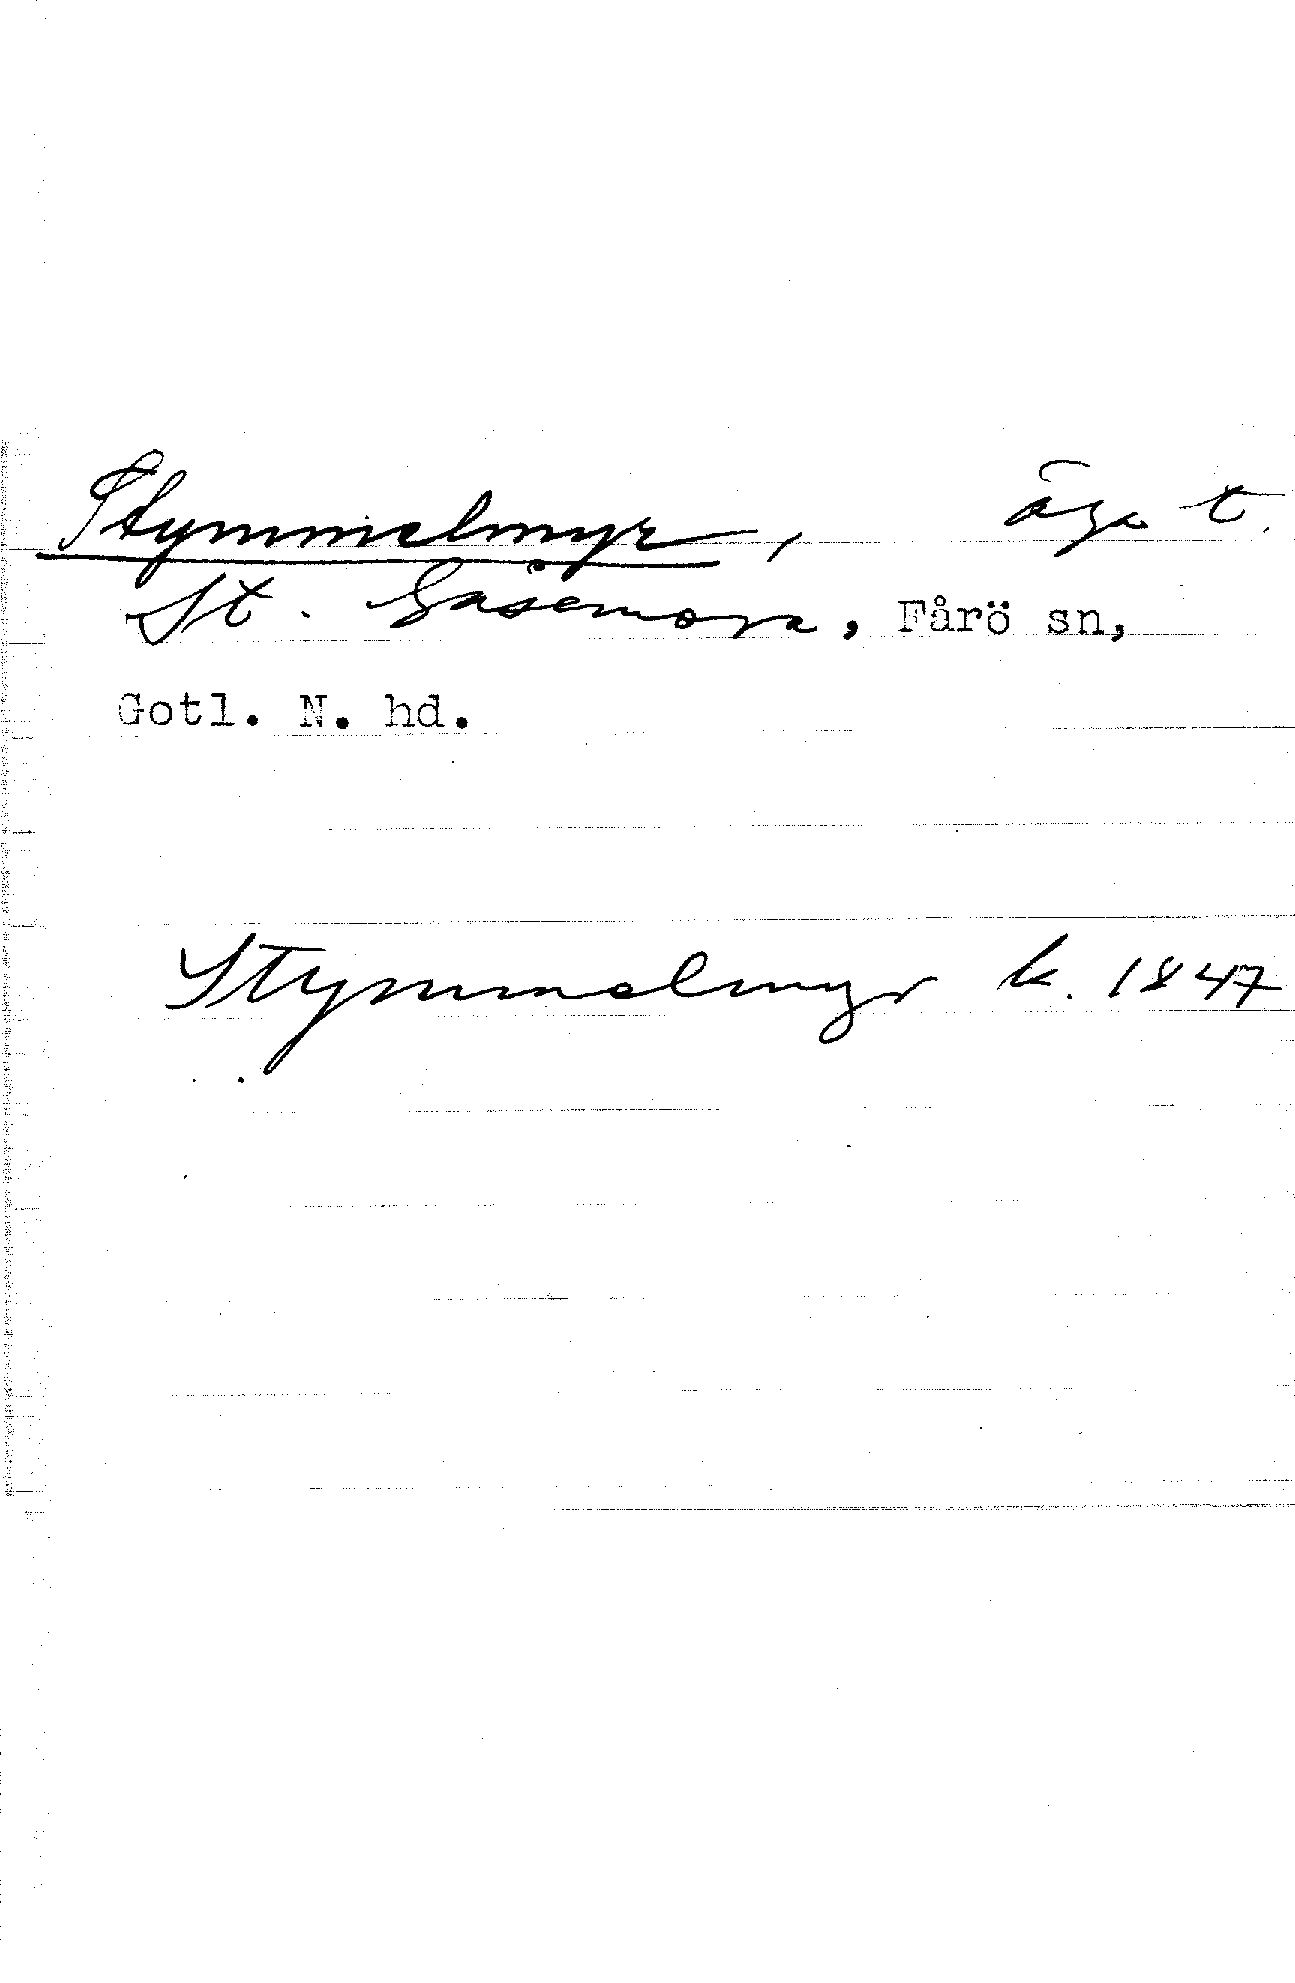 Stymmelmyr, äga t.
St. Gåsemora, Fårö sn,
Gotl. N. hd.
Stymmelmyr k. 1847